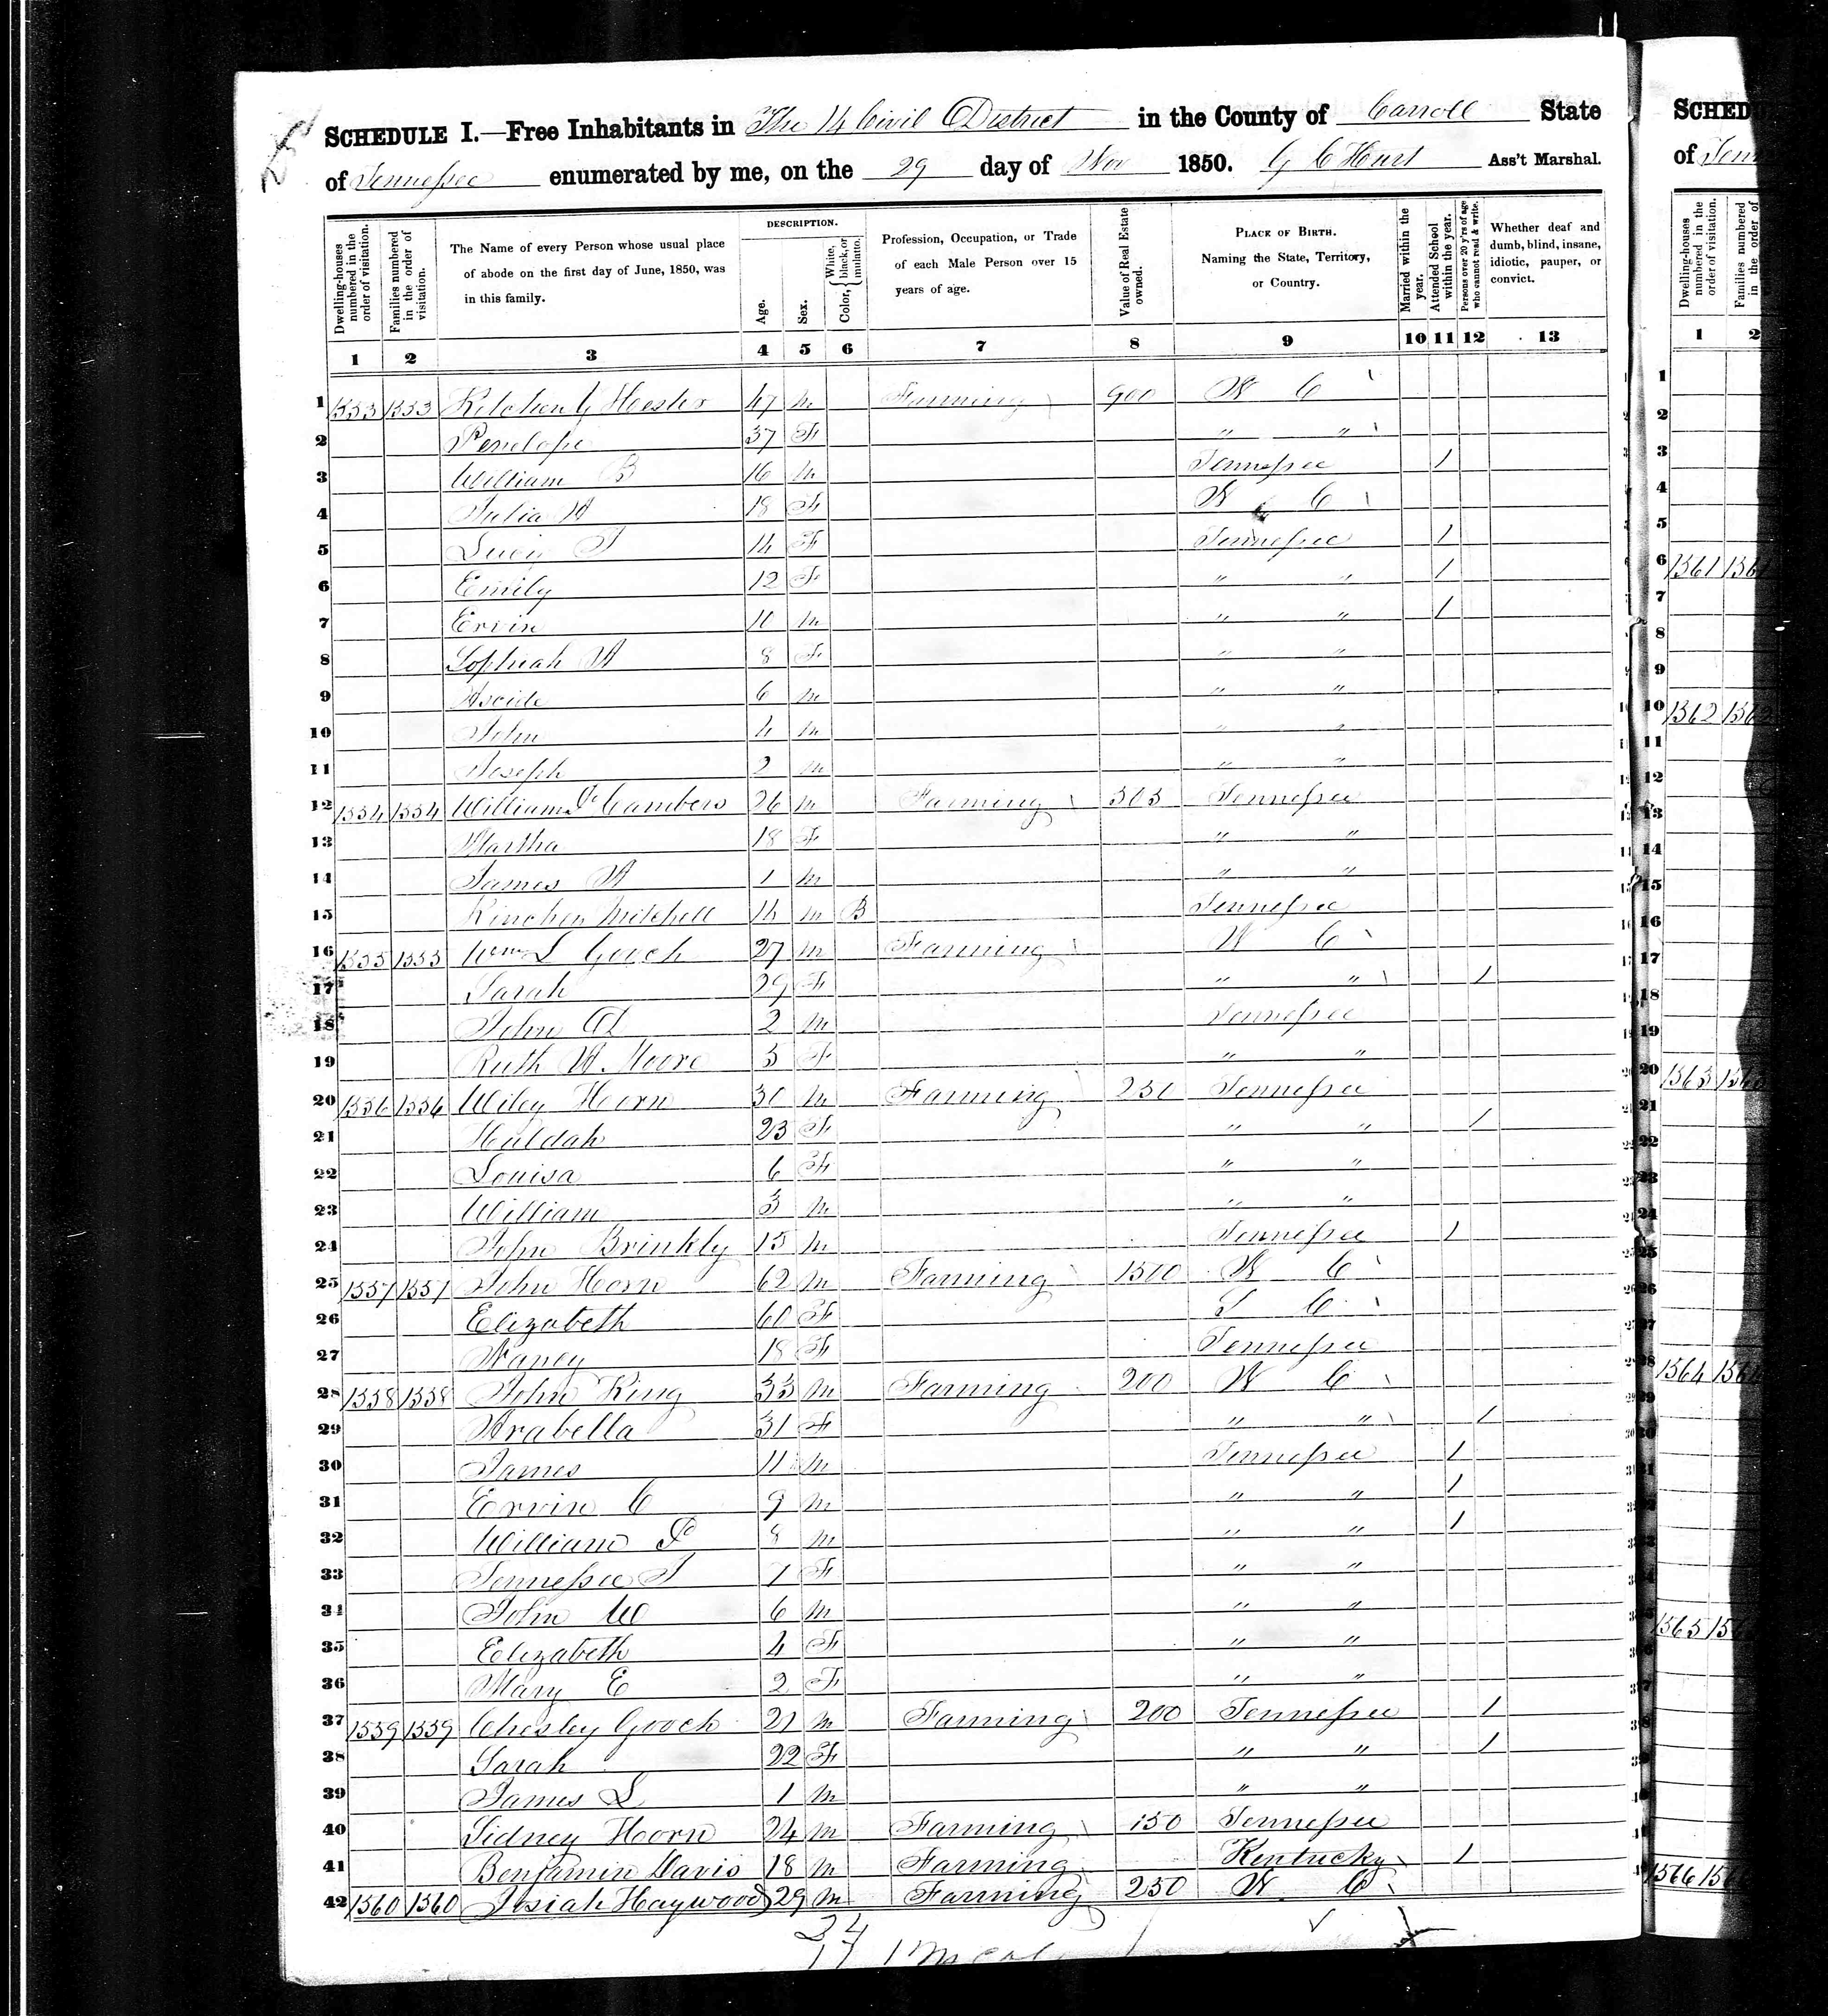 SCHEDULE I.—Free Inhabitants in The 14 Civil District in the County of Carroll State
of Tennessee enumerated by me, on the 29 day of Nov 1850. G C Hurt Ass't Marshal.
Dwelling-houses numbered in the order of visitation.
Families numbered in the order of visitation.
The Name of every Person whose usual place of abode on the first day of June, 1850, was in this family.
DESCRIPTION.
Age.
Sex.
Color, { White, black, or mulatto.
Profession, Occupation, or Trade of each Male Person over 15 years of age.
Value of Real Estate owned.
PLACE OF BIRTH. Naming the State, Territory, or Country.
Married within the year.
Attended School within the year.
Persons over 20 y'rs of age who cannot read & write.
Whether deaf and dumb, blind, insane, idiotic, pauper, or convict.
1 2 3 4 5 6 7 8 9 10 11 12 13
1 1553 1553 Hester 47 M Farming 900 N C
2 Penelope 37 F " "
3 William B 16 M Tennessee 1
4 Julia A 18 F N C
5 Lucy T 14 F Tennessee 1
6 Emily 12 F " " 1
7 Ervin 10 M " " 1
8 Sophiah A 8 F " "
9 6 M " "
10 John 4 M " "
11 Joseph 2 M " "
12 1554 1554 William Cambers 26 M Farming Tennessee
13 Martha 18 F " "
14 James A 1 M " "
15 Kinchen Mitchell 14 M B Tennessee
16 1555 1555 Wm L Gooch 27 M Farming N C
17 Sarah 29 F " " 1
18 John A 2 M Tennessee
19 Ruth A. Moore 5 F " "
20 1556 1556 Wiley Horn 30 M Farming 250 Tennessee
21 Huldah 23 F " " 1
22 Louisa 6 F " "
23 William 3 M " "
24 John Brinkly 15 M Tennessee 1
25 1557 1557 John Horn 62 M Farming 1500 N C
26 Elizabeth 60 F S C
27 Nancy 18 F Tennessee
28 1558 1558 John King 33 M Farming 200 N C
29 Arabella 31 F " " 1
30 James 11 M Tennessee 1
31 Ervin C 9 M " " 1
32 William P 8 M " " 1
33 Tennessee T 7 F " "
34 John W 6 M " "
35 Elizabeth 4 F " "
36 Mary E 2 F " "
37 1559 1559 Chesley Gooch 21 M Farming 200 Tennessee 1
38 Sarah 22 F " " 1
39 James L 1 M " "
40 Sidney Horn 24 M Farming 150 Tennessee
41 Benjamin Davis 18 M Farming Kentucky 1
42 1560 1560 Josiah Haywood 29 M Farming 250 N C
24
17
SCHED
of Tenn
Dwelling-houses numbered in the order of visitation.
Families numbered in the order of
1 2
1
2
3
4
5
6 1561 1561
7
8
9
10 1562 1562
11
12
13
14
15
16
17
18
19
20 1563
21
22
23
24
25
26
27
28 1564
1565
1566